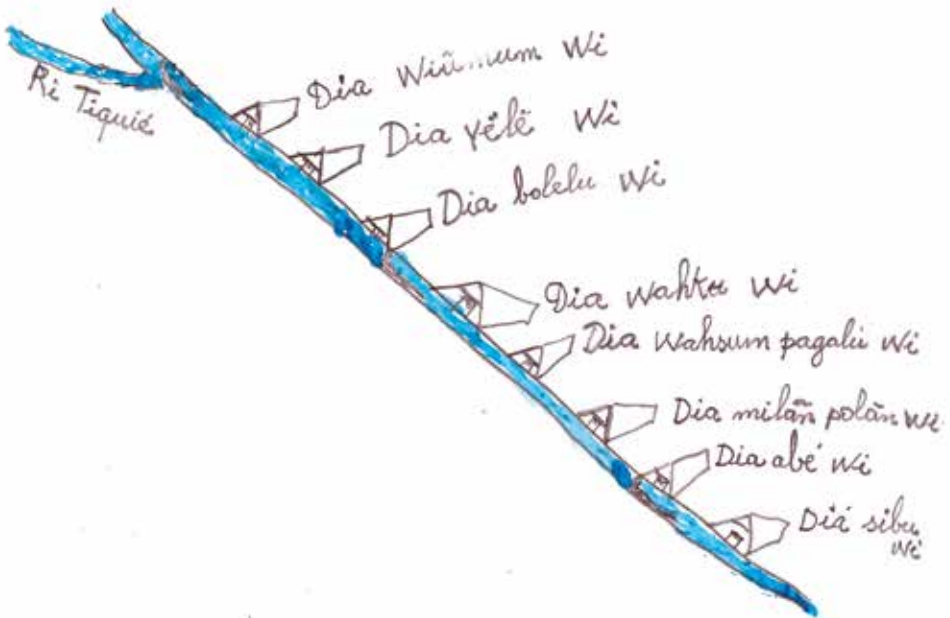 Ri Tiquié
Dia Wiũmum Wi
Dia yẽlẽ Wi
Dia bolelu Wi
Dia wahku Wi
Dia Wahsum pagalú Wi
Dia milãñ polãn Wi
Dia abé Wi
Diá sibu
Wi